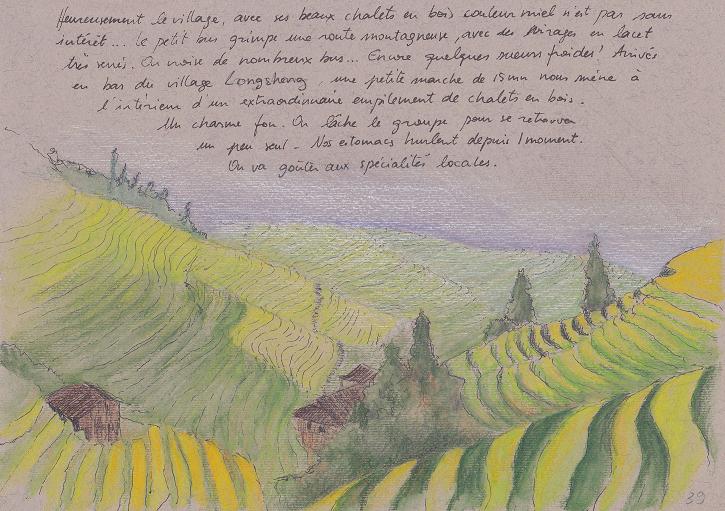 Heureusement le village, avec ses beaux chalets en bois couleur miel n'est pas sans
intérêt... Le petit bus grimpe une route montagneuse, avec des virages en lacet
très serrés. On croise de nombreux bus... Encore quelques sueurs froides! Arrivés
en bas du village Longsheng, une petite marche de 15mn nous mène à
l'intérieur d'un extraordinaire empilement de chalets en bois.
Un charme fou. On lâche le groupe pour se retrouver
un peu seul. Nos estomacs hurlent depuis 1 moment.
On va goûter aux spécialités locales.
39